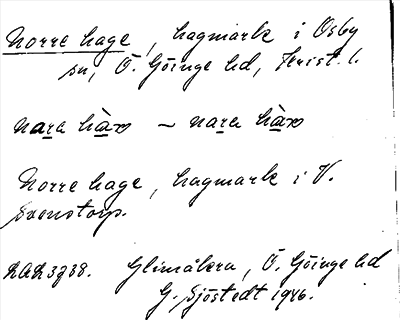 Norre hage, hagmark i Osby
sn, Ö. Göinge hd, Krist. l.
nara hàw ~ nara hàw
Norre hage, hagmark i V.
Svenstorp.
Glimåkra, Ö. Göinge hd
G. Sjöstedt 1946.